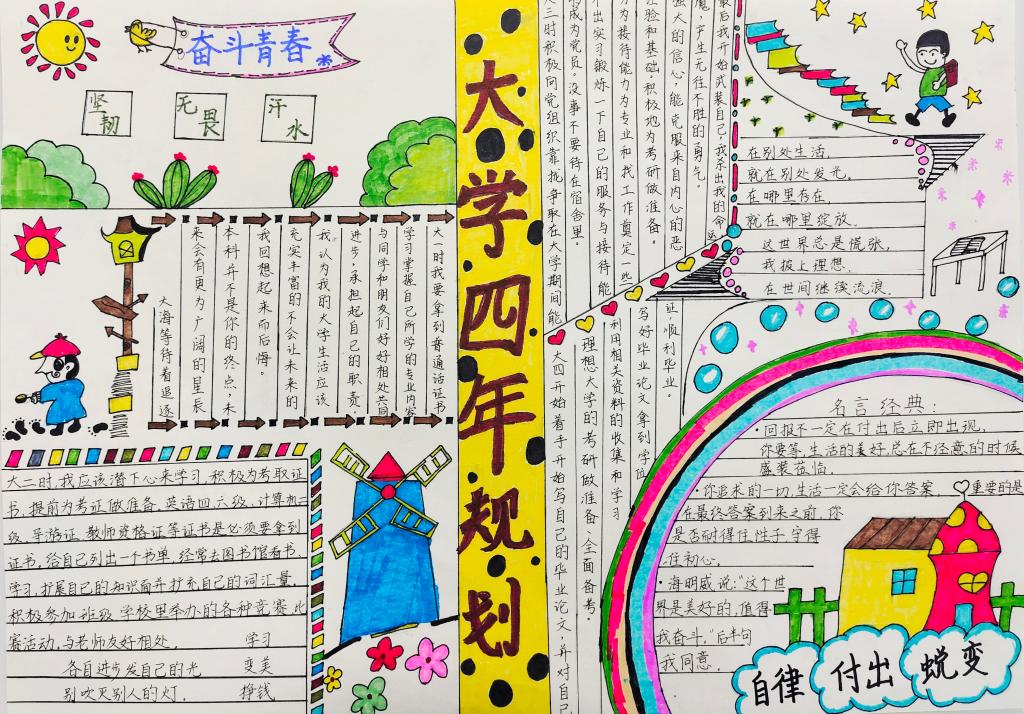 奋斗青春
坚韧
无畏
汗水
大学四年规划
大一时我要拿到普通话证书
学习掌握自己所学的专业内容
与同学和朋友们好好相处共同
进步,承担起自己的职责。
我认为我的大学生活应该
充实丰富的不会让未来的
我回想起来而后悔。
本科并不是你的终点,未
来会有更为广阔的星辰
大海等待着遥逐
大二时,我应该潜下心来学习,积极为考取证
书,提前为考证做准备。英语四、六级、计算机二
级、导游证、教师资格证等证书是必须要拿到
证书,给自己列出一个书单,经常去图书馆看书、
学习,扩展自己的知识面并扩充自己的词汇量。
积极参加班级、学校里举办的各种竞赛、比
赛活动,与老师友好相处。 学习
各自进步发自己的光 变美
别吹灭别人的灯. 挣钱
大三时积极向党组织靠拢,争取在大学期间能
成为党员。没事不要待在宿舍里
出实习锻炼一下自己的服务与接待能
为接待能力为专业和找工作奠定一些
经验和基础。积极地为考研做准备。
强大的信心,能克服来自内心的恶
魔,产生无往不胜的勇气。
最后我开始武装自己,我杀出我的命运
大四开始着手开始写自己的毕业论文,并对自己
理想大学的考研做准备,全面备考。
利用相关资料的收集和学习
写好毕业论文拿到学位
证顺利毕业。
在别处生活,
就在别处发光.
在哪里存在,
就在哪里绽放.
这世界总是慌张,
我披上理想.
在世间继续流浪.
名言经典:
·回报不一定在付出后立即出现,
你要等,生活的美好,总在不经意的时候
盛装莅临.
·你追求的一切,生活一定会给你答案,重要的是
在最终答案到来之前,你
是否耐得住性子,守得
住初心.
·海明威说:"这个世
界是美好的,值得
我奋斗."后半句
我同意.
自律 付出 蜕变